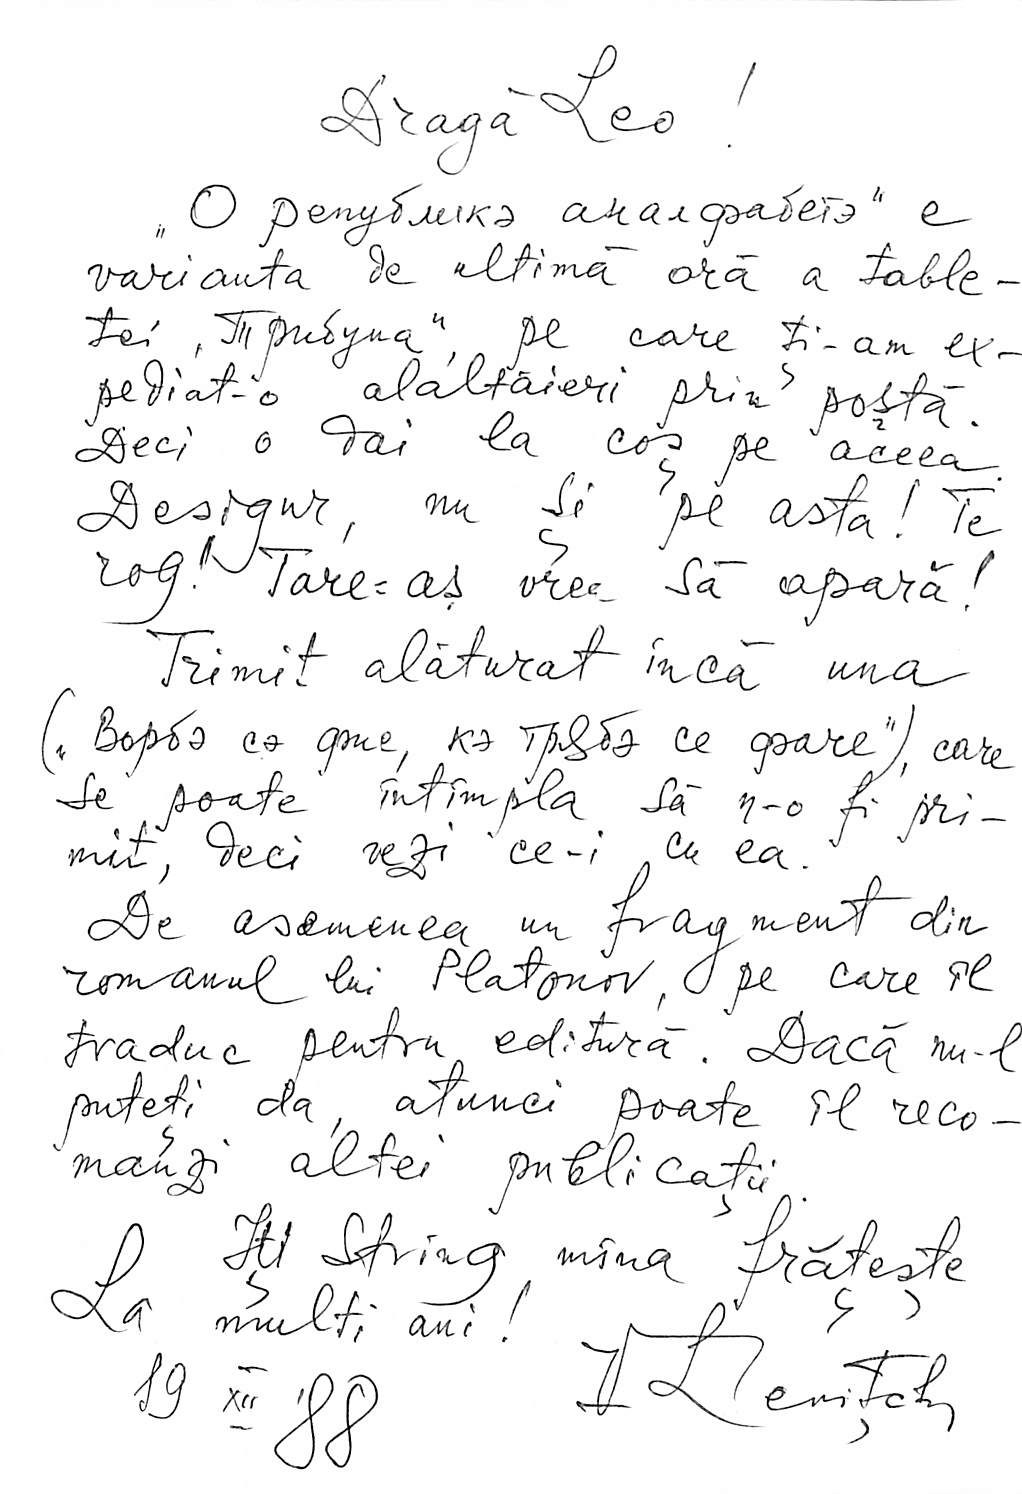 Dragă Leo!
„О републикэ аналфабетэ" e
varianta de ultimă oră a table-
tei „Трибуна", pe care ți-am ex-
pediat-o alaltăieri prin poștă.
Deci o dai la coș pe aceea.
Desigur, nu și pe asta! Te
rog! Tare-aș vrea să apară!
Trimit alăturat încă una
(„Ворбэ сэ фие, кэ трябэ се фаче"), care
se poate întîmpla să n-o fi pri-
mit, deci vezi ce-i cu ea.
De asemenea un fragment din
romanul lui Platonov, pe care îl
traduc pentru editură. Dacă nu-l
puteți da, atunci poate îl reco-
manzi altei publicații.
Îți string mîna frățește
La mulți ani!
19 XII '88